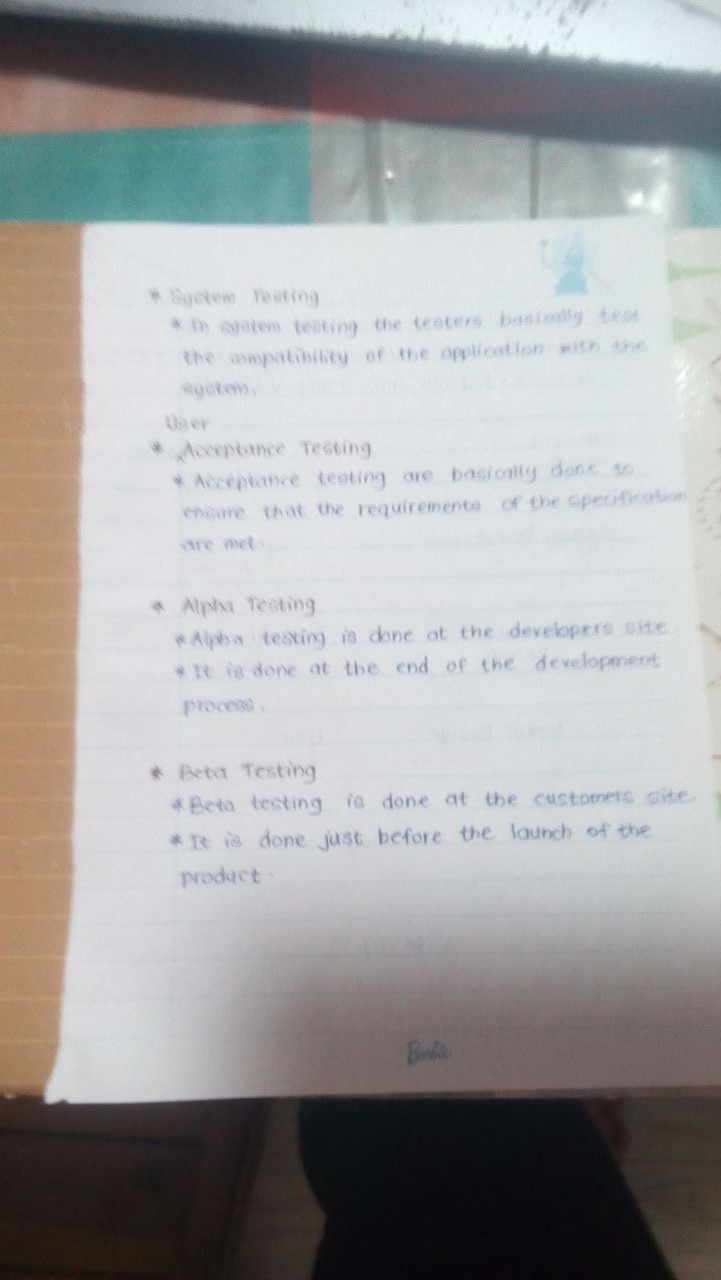 * System Testing
* In system testing the testers basically test
the compatibility of the application with the
system.
User
* Acceptance Testing
* Acceptance testing are basically done to
ensure that the requirements of the specification
are met.
* Alpha Testing
* Alpha testing is done at the developers site.
* It is done at the end of the development
process.
* Beta Testing
* Beta testing is done at the customers site.
* It is done just before the launch of the
product.
Barbie